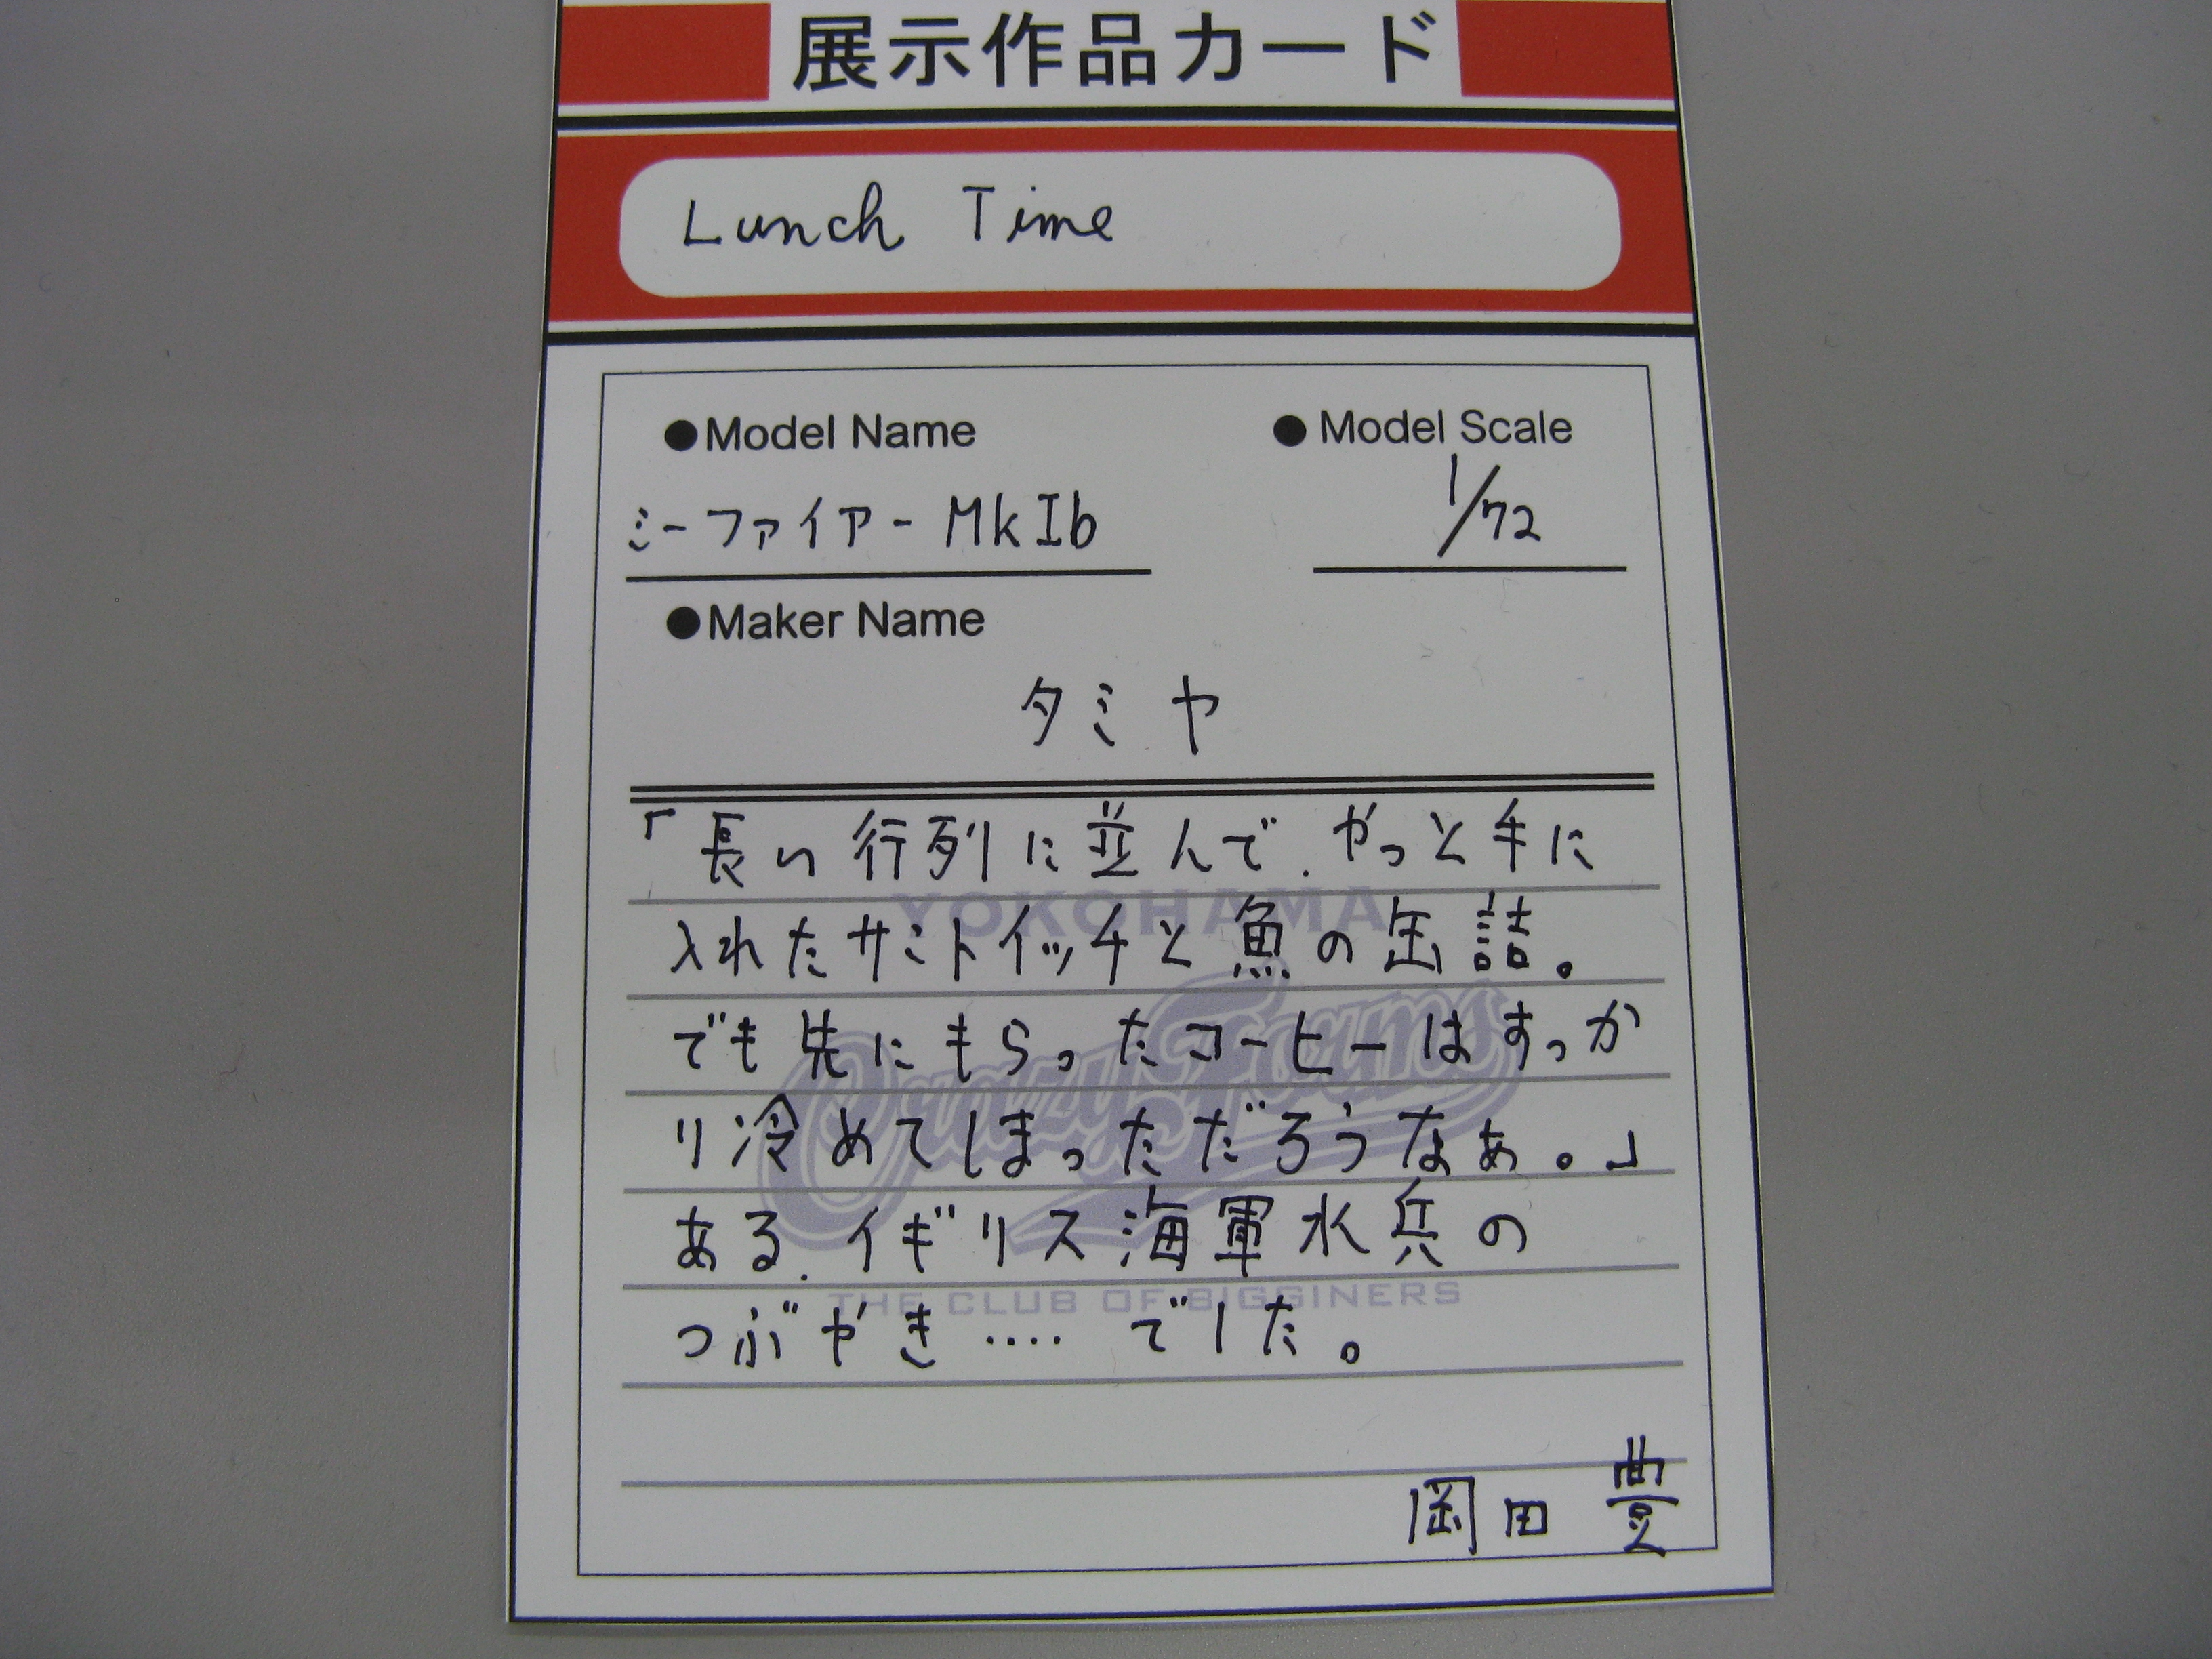 展示作品カード
Lunch Time
●Model Name
● Model Scale
シーファイアー MkIb
1/72
●Maker Name
タミヤ
「長い行列に立んで、やっと手に
YOKOHAMA
入れたサンドイッチと魚の缶詰。
でも先にもらったコーヒーはすっか
Crazy Foams
り冷めてしまっただろうなぁ。」
ある、イギリス海軍水兵の
THE CLUB OF BIGGINERS
つぶやき‥‥でした。
岡田 豊